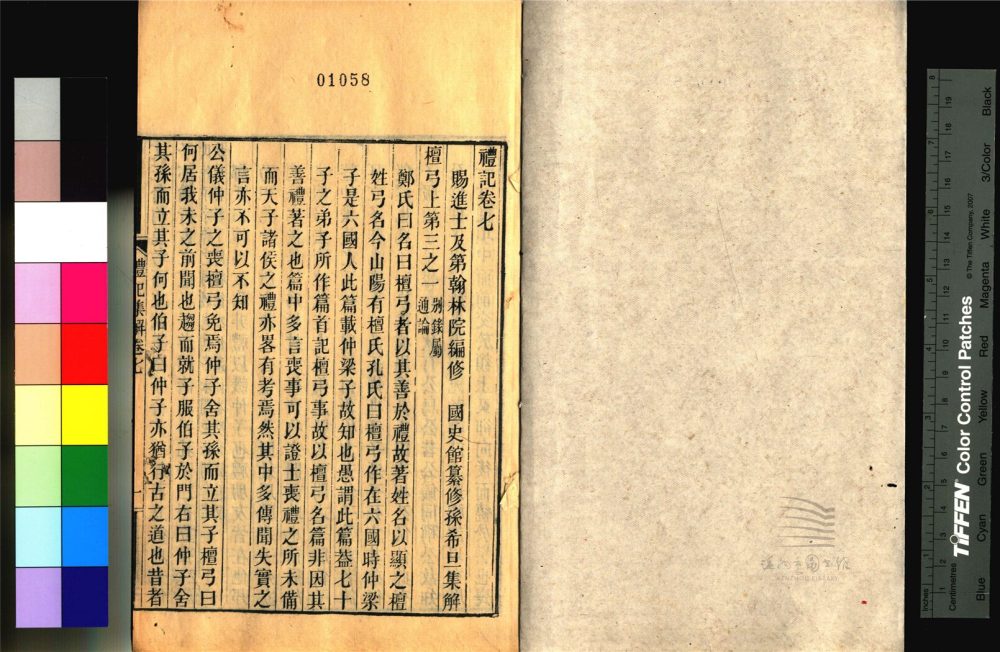 01058
禮記卷七
賜進士及第翰林院編修 國史館纂修孫希旦集解
檀弓上第三之一 別錄屬通論
鄭氏曰名曰檀弓者以其善於禮故著姓名以顯之檀
姓弓名今山陽有檀氏孔氏曰檀弓作在六國時仲梁
子是六國人此篇載仲梁子故知也愚謂此篇葢七十
子之弟子所作篇首記檀弓事故以檀弓名篇非因其
善禮著之也篇中多言喪事可以證士喪禮之所未備
而天子諸侯之禮亦畧有考焉然其中多傳聞失實之
言亦不可以不知
公儀仲子之喪檀弓免焉仲子舍其孫而立其子檀弓曰
何居我未之前聞也趨而就子服伯子於門右曰仲子舍
其孫而立其子何也伯子曰仲子亦猶行古之道也昔者
禮記集解卷七
一
溫州市圖书馆
WENZHOU LIBRARY
TIFFEN Color Control Patches
© The Tiffen Company, 2007
Inches
Centimetres
Blue
Cyan
Green
Yellow
Red
Magenta
White
3/Color
Black